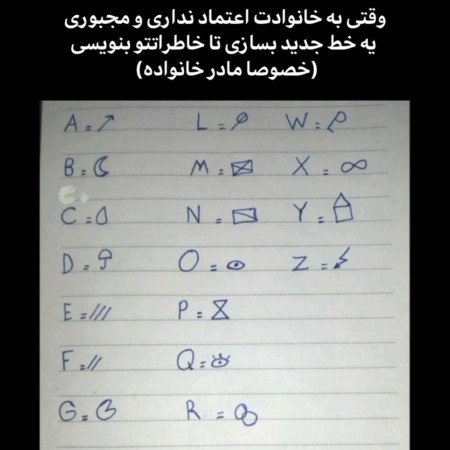 وقتی به خانوادت اعتماد نداری و مجبوری
یه خط جدید بسازی تا خاطراتتو بنویسی
(خصوصا مادر خانواده)
A = ↗ L = W =
B = ☾ M = X = ∞
C = N = Y =
D = ☂ O = Z = ↯
E = /// P =
F = // Q =
G = R =